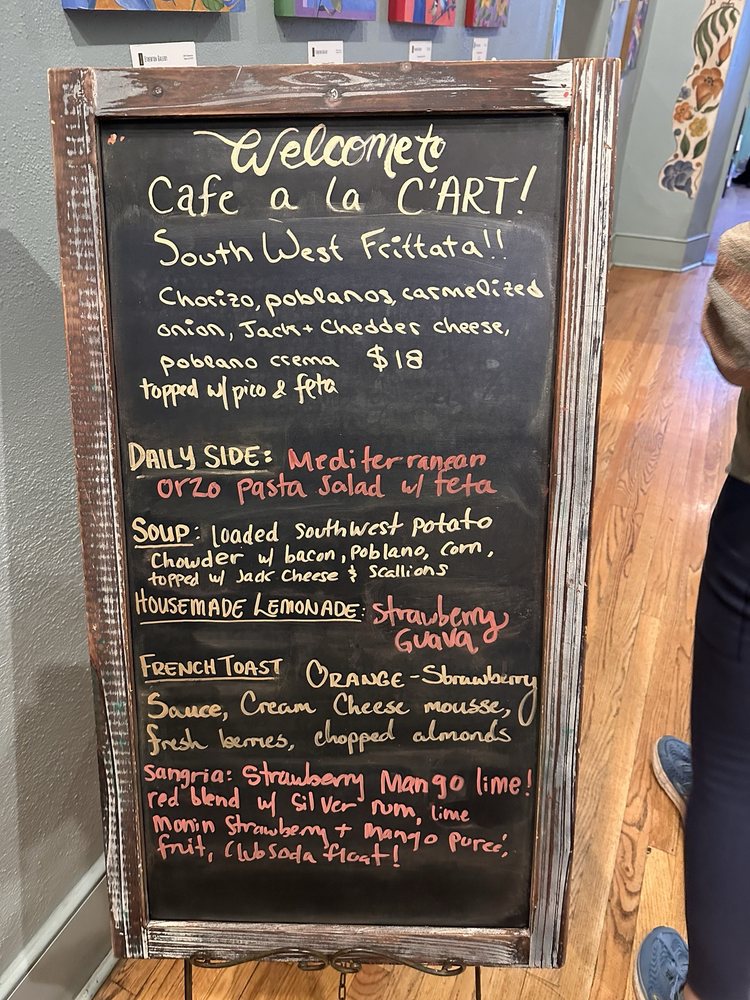 Welcome to
Cafe a la C'ART!
South West Frittata!!
Chorizo, poblanos, carmelized
onion, Jack + Chedder cheese,
poblano crema $18
topped w/ pico & feta
DAILY SIDE: Mediterranean
Orzo Pasta Salad w/ feta
SOUP: loaded Southwest potato
Chowder w/ bacon, Poblano, corn,
topped w/ Jack Cheese & Scallions
HOUSEMADE LEMONADE: Strawberry
GUAVA
FRENCH TOAST ORANGE-Strawberry
Sauce, Cream Cheese mousse,
fresh berries, chopped almonds
Sangria: Strawberry Mango lime!
red blend w/ silver rum, lime
Monin Strawberry + mango pureé,
fruit, Club Soda float!